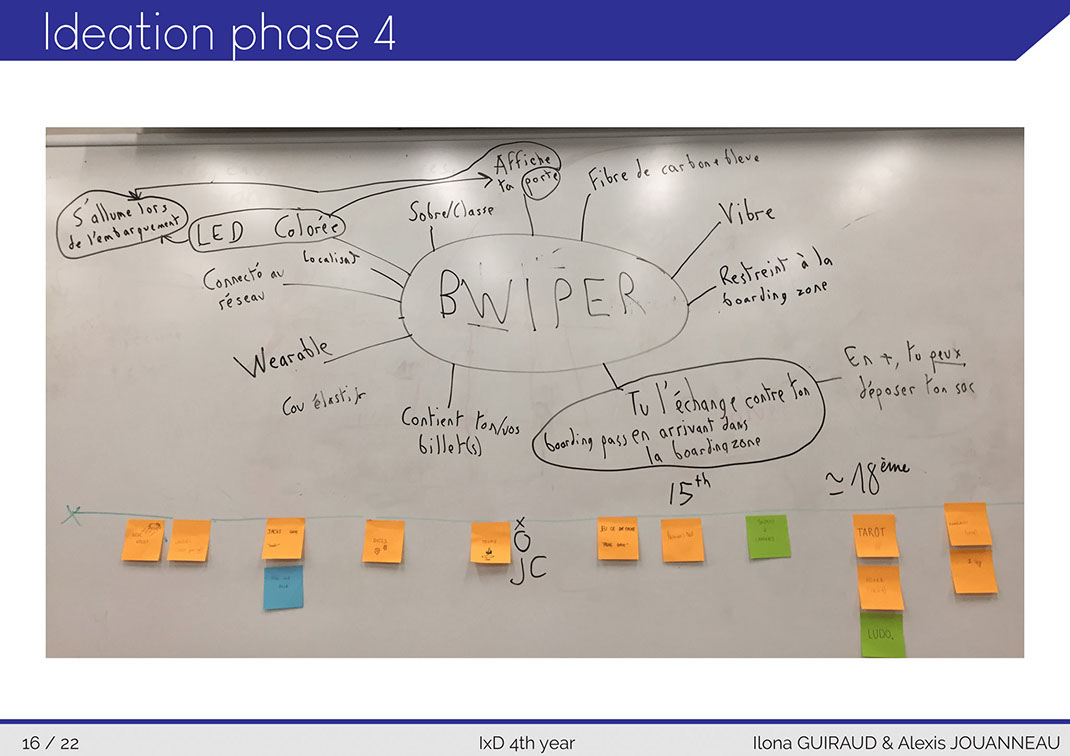 Ideation phase 4
Affiche
ta porte
Fibre de carbone bleue
S'allume lors
de l'embarquement
LED Colorée
Sobre/Classe
Vibre
Localisat
Connecté au
réseau
BWIPER
Restreint à la
boarding zone
Wearable
Cou élastiq
Contient ton/vos
billet(s)
Tu l'échange contre ton
boarding pass en arrivant dans
la boarding zone
En +, tu peux
déposer ton sac
15th
≃ 18ème
X
O
JC
DICES
TAROT
LUDO.
16 / 22
IxD 4th year
Ilona GUIRAUD & Alexis JOUANNEAU